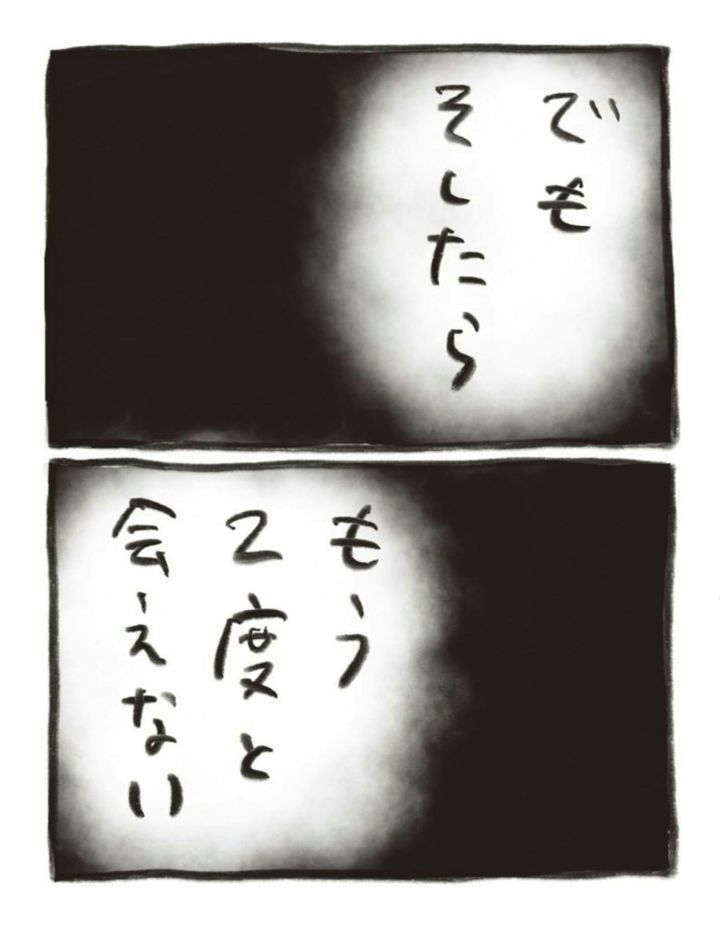 でも
そしたら
もう
2度と
会えない